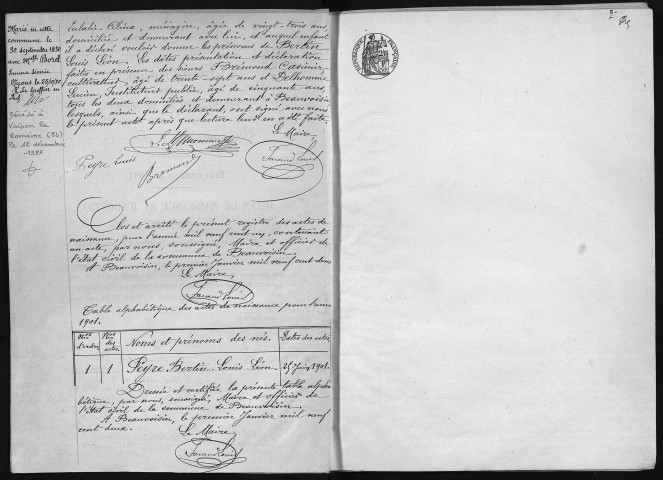 Marié en cette
commune le
30 septembre 1930
avec Mlle Borel
Emma
le
Greffier
décédé à
Vaison la
Romaine (84)
le 12 décembre
1987
Eulalie Célina, ménagère, âgée de vingt-trois ans
domiciliée et demeurant avec lui, et auquel enfant
il a déclaré vouloir donner les prénoms de Bertin
Louis Léon. Les dites présentation et déclaration
faites en présence des sieurs Brémond Casimir
cultivateur, âgé de trente-sept ans et Delhomme
Lucien, Instituteur public, âgé de cinquante ans,
tous les deux domiciliés et demeurant à Beauvoisin
lesquels, ainsi que le déclarant, ont signé avec nous
le présent acte après que lecture leur en a été faite.
Le Maire
Peyre Louis
Bremond
Clos et arrêté le présent registre des actes de
naissance, pour l'année mil neuf cent un, contenant
un acte, par nous, soussigné, Maire et officier de
l'état civil de la commune de Beauvoisin.
A Beauvoisin, le premier Janvier mil neuf cent deux
Le Maire
Table alphabétique des actes de naissance pour l'année
1901.
Nos d'ordre
Nos des actes
Noms et prénoms des nés.
Dates des actes
1 1 Peyre Bertin-Louis-Léon. 25 Juin 1901.
Dressée et certifiée la présente table alpha-
bétique, par nous, soussigné, Maire et officier de
l'état civil de la commune de Beauvoisin.
A Beauvoisin, le premier Janvier mil neuf
cent deux.
Le Maire
2